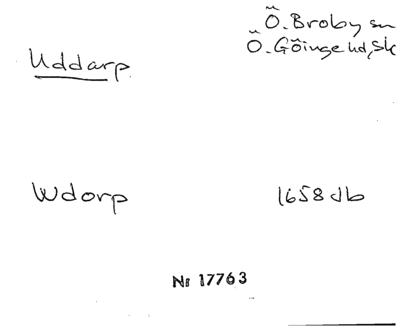 Ö.Broby sn
Uddarp
Ö.Göinge hd, Sk
Wdorp 1658 Jb
Nr 17763